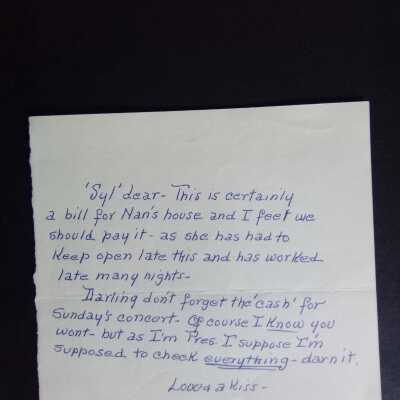 'Syl' dear - This is certainly
a bill for Nan's house and I feel we
should pay it - as she has had to
keep open late this and has worked
late many nights -
Darling don't forget the 'cash' for
Sunday's concert - Of course I know you
wont - but as I'm Pres. I suppose I'm
supposed to check everything - darn it.
Love & a Kiss -